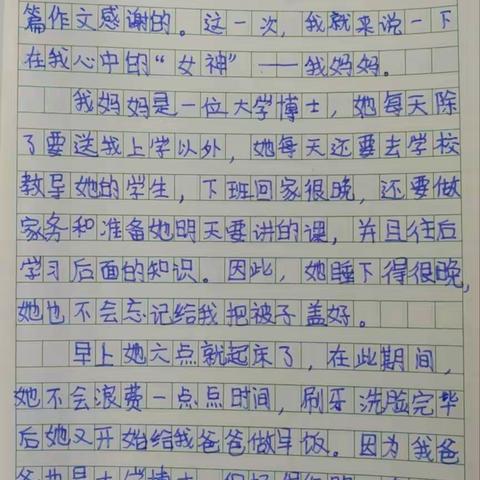 篇作文感谢的。这一次，我就来说一下
在我心中的“女神”——我妈妈。
我妈妈是一位大学博士，她每天除
了要送我上学以外，她每天还要去学校
教导她的学生，下班回家很晚，还要做
家务和准备她明天要讲的课，并且往后
学习后面的知识。因此，她睡下得很晚，
她也不会忘记给我把被子盖好。
早上她六点就起床了，在此期间，
她不会浪费一点点时间，刷牙洗脸完毕
后她又开始给我爸爸做早饭。因为我爸
爸也是大学博士